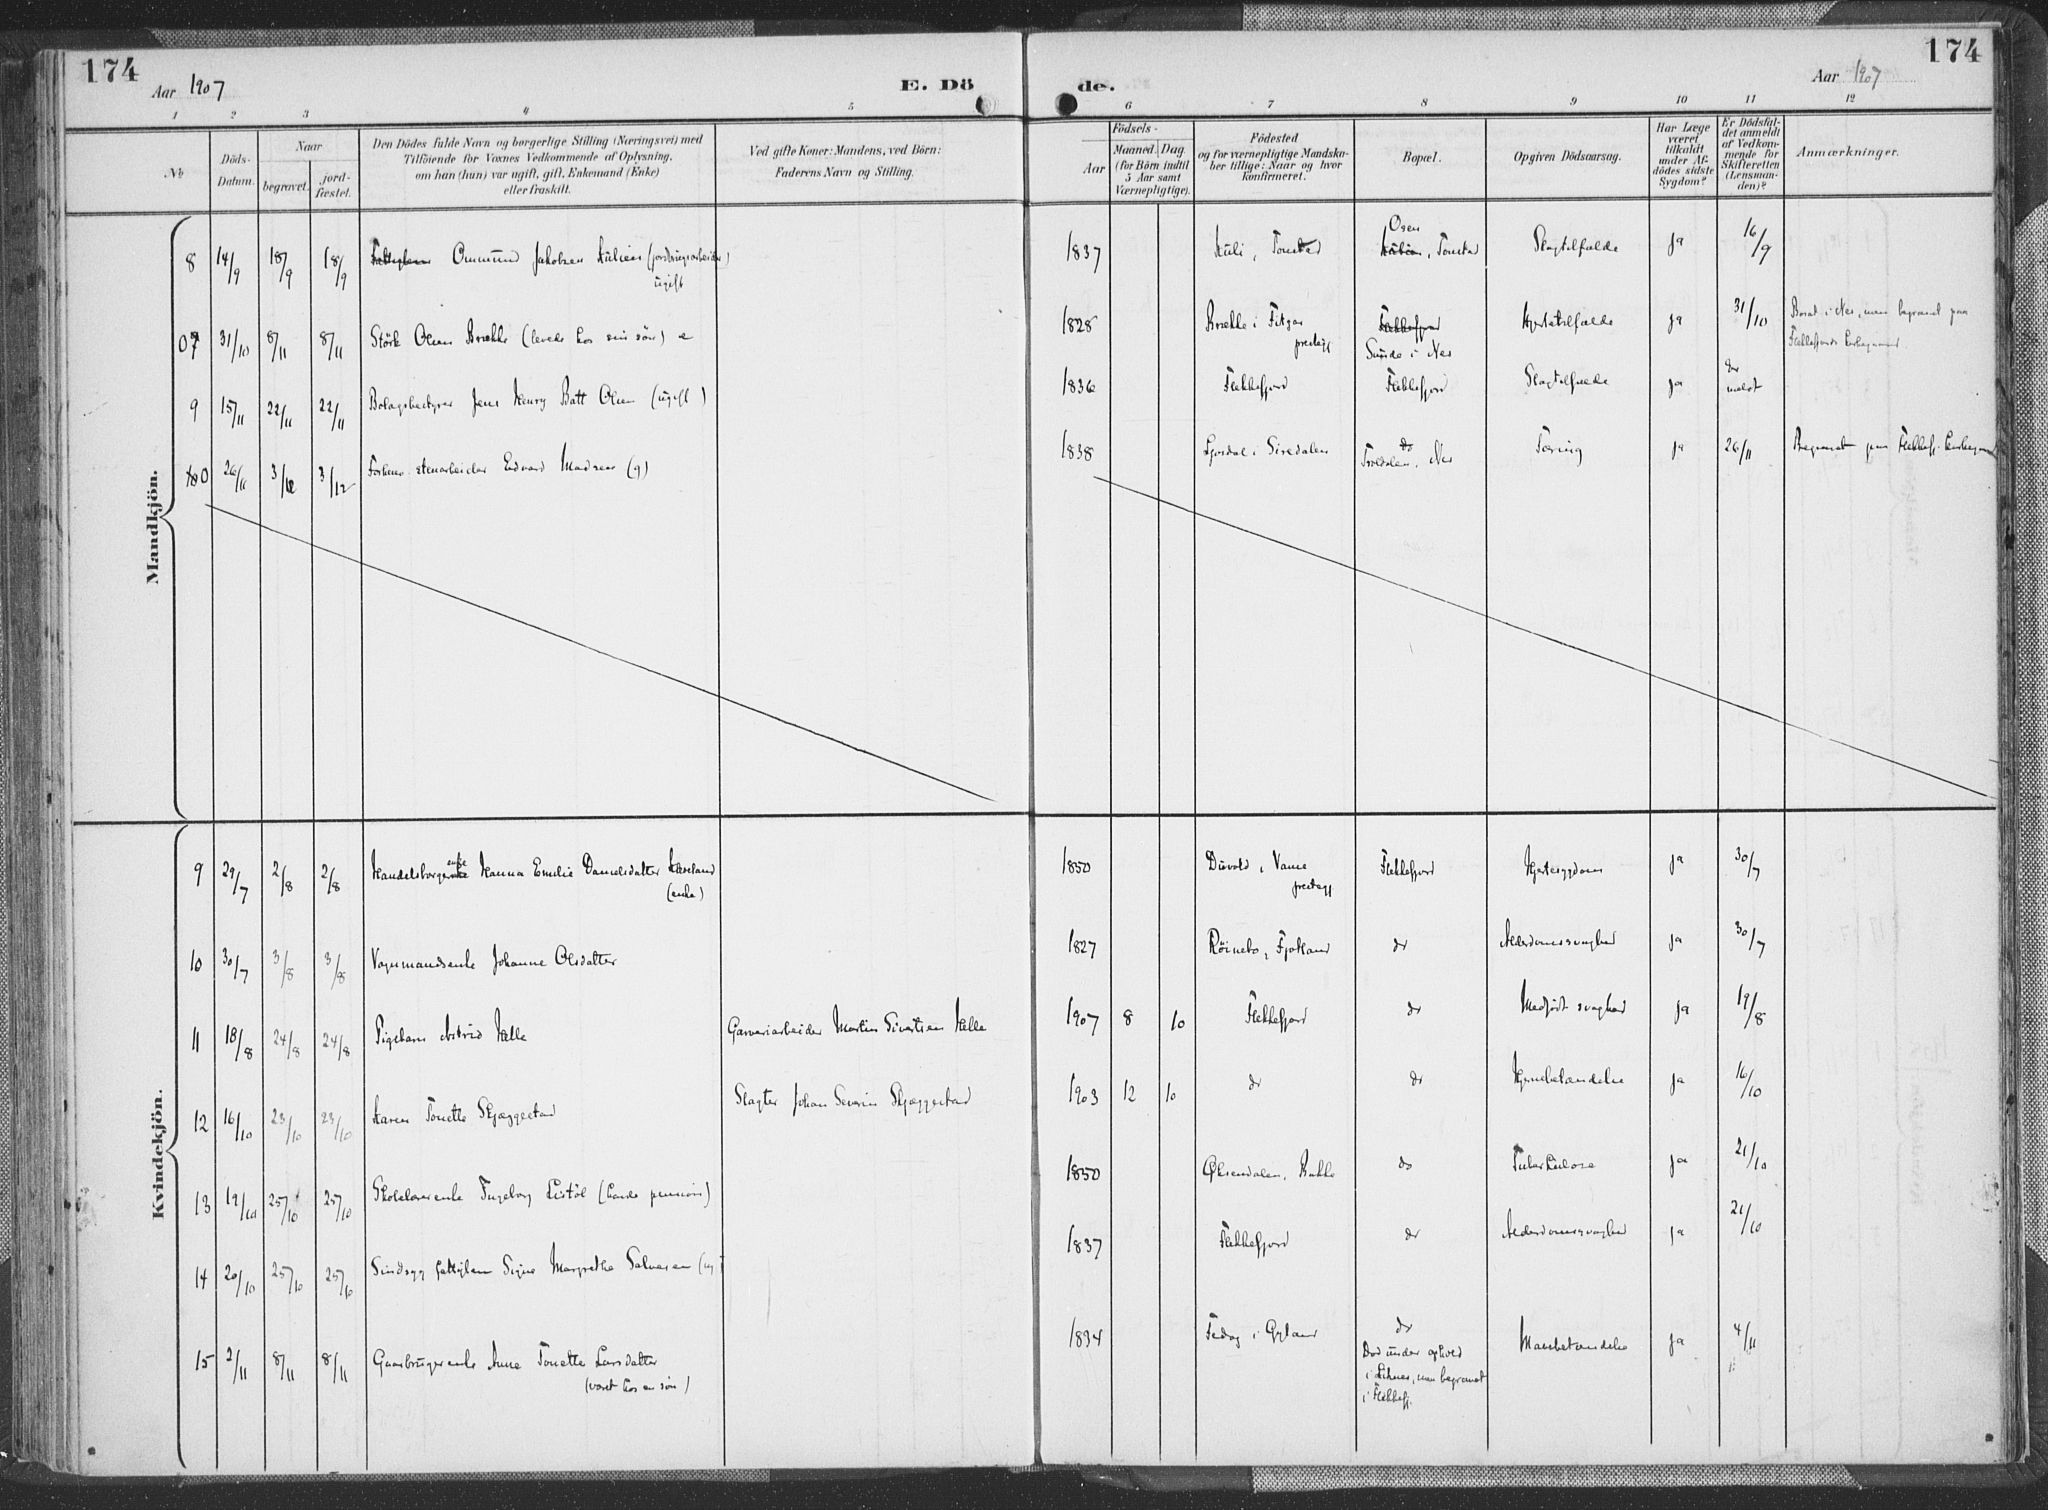 174
Aar 1907
E. Dö
de.
Aar 1907
174
1 2 3 4 5 6 7 8 9 10 11 12
No
Döds-
Datum.
Naar
begravet.
jord-
fæstet.
Den Dödes fulde Navn og borgerlige Stilling (Næringsvei) med
Tilföiende for Voxnes Vedkommende af Oplysning,
om han (hun) var ugift, gift, Enkemand (Enke)
eller fraskilt.
Ved gifte Koner: Mandens, ved Börn:
Faderens Navn og Stilling.
Aar
Födsels-
Maaned. Dag.
(for Börn indtil
5 Aar samt
Værnepligtige).
Födested
og for værnepligtige Mandska-
ber tillige: Naar og hvor
konfirmeret.
Bopæl.
Opgiven Dödsaarsag.
Har Læge
været
tilkaldt
under Af-
dödes sidste
Sygdom?
Er Dödsfal-
det anmeldt
af Vedkom-
mende for
Skifteretten
(Lensman-
den)?
Anmærkninger.
Mandkjön.
8 14/9 18/9 18/9 Ommund Jakobsen (jordbrugsarbeider) 1837 Tonstad Osen Tonstad Slagtilfælde ja 16/9
ugift
31/10 8/11 8/11 Störk Olsen Brække (levede hos sin sön) e 1828 Brække i Fitgar Flekkefjord Hjertetilfælde ja 31/10 Bosat i Nes, men begravet paa
prestegj Sunde i Nes Flekkefjords kirkegaard
9 15/11 22/11 22/11 Jens Henry Batt Olsen (ugift) 1836 Flekkefjord Flekkefjord Slagtilfælde ja meldt
26/11 3/12 3/12 stenarbeider Edvard Madsen (g) 1838 i Siredalen Nes Tæring ja 26/11 Begravet paa Flekkefj. kirkegaard
Kvindekjön.
9 29/7 2/8 2/8 Handelsborgerenke Hanna Emilie Danielsdatter 1850 Duvold i Vanse Flekkefjord Hjertesygdom ja 30/7
(enke) prestegj
10 30/7 3/8 3/8 Vognmandsenke Johanne Olsdatter 1827 Röinebo, Fjotland do Alderdomssvaghed ja 30/7
11 18/8 24/8 24/8 Pigebarn Astrid Helle Garveriarbeider Martin Sivertsen Helle 1907 8 10 Flekkefjord do Medfödt svaghed ja 19/8
12 16/10 23/10 23/10 Karen Tonette Skjæggestad Slagter Johan Severin Skjæggestad 1903 12 10 do do Hjernebetændelse ja 16/10
13 19/10 25/10 25/10 Skolelærerenke Ingeborg Listöl (havde pension) 1850 Øksendalen, Bakke do Tuberkulose ja 21/10
14 20/10 25/10 25/10 Sindssyg fattiglem Signe Margrethe Salvesen (ug) 1837 Flekkefjord do Alderdomssvaghed ja 21/10
15 2/11 8/11 8/11 Gaardbrugerenke Anne Tonette Larsdatter 1834 Fedog i Gyland do Mavebetændelse ja 4/11
(været hos en sön) Död under ophold
i Liknes, men begravet
i Flekkefj.